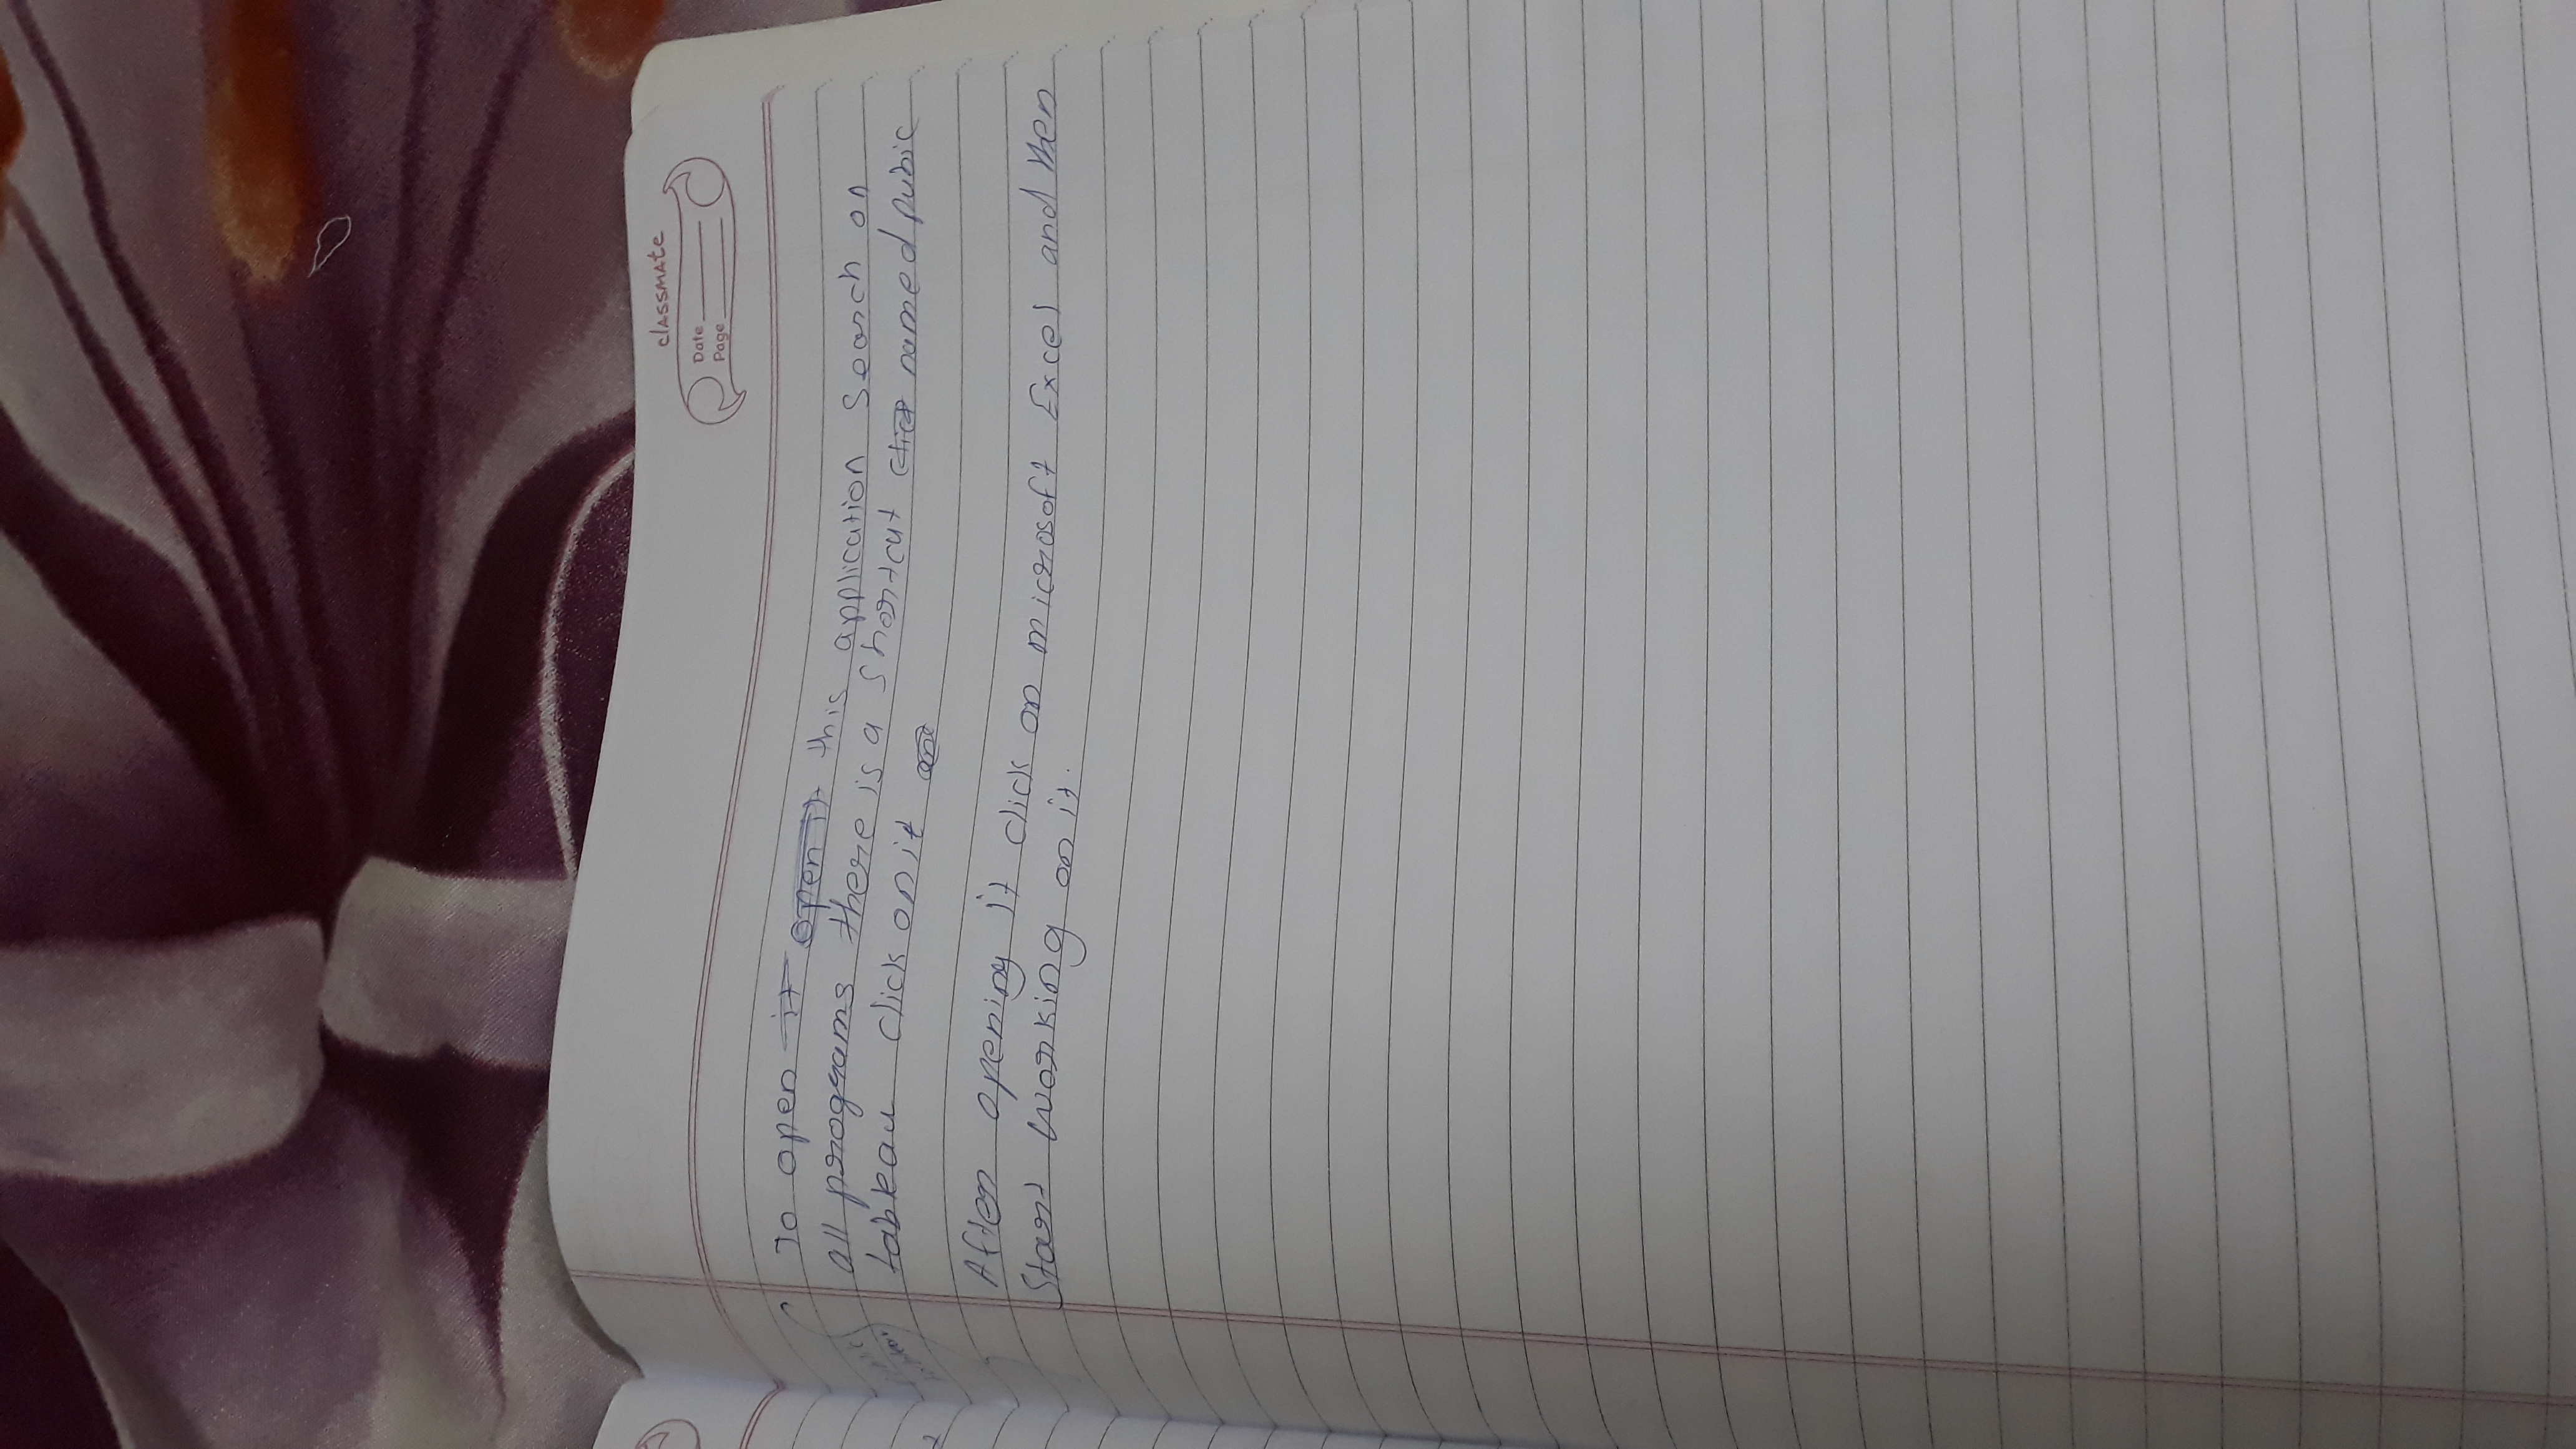 classmate
Date
Page
To open it open it this application search on
all programs there is a shortcut clict named pubic
tableau click on it and
After opening it click on microsoft Excel and then
Start working on it.